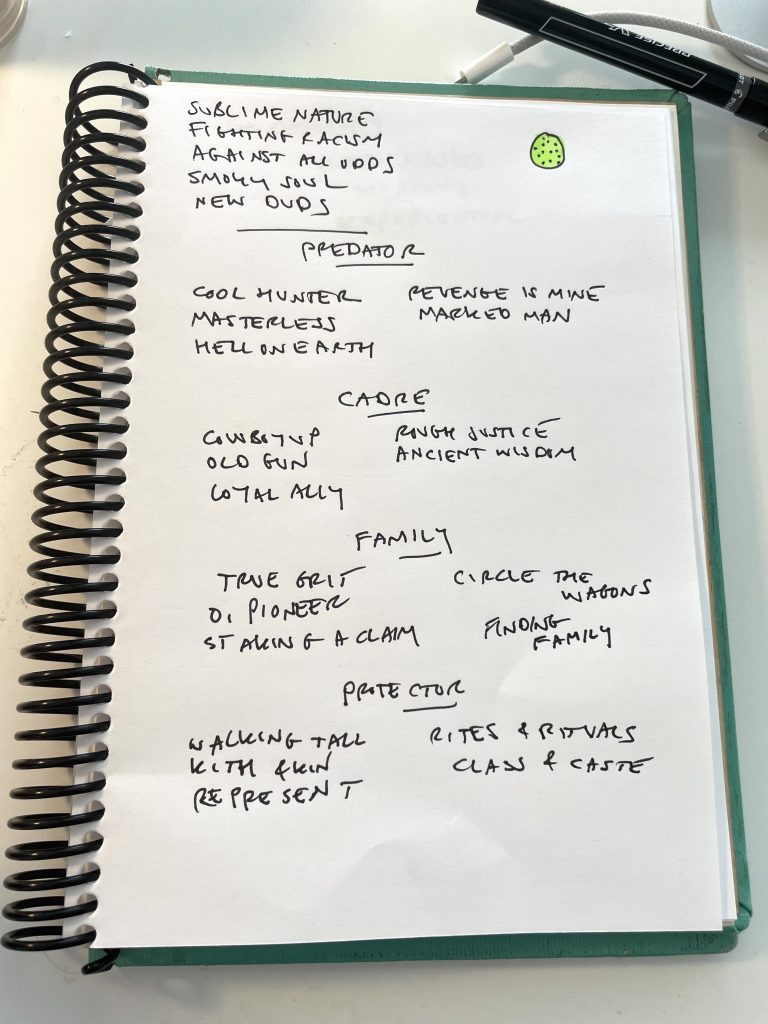 SUBLIME NATURE
FIGHTING RACISM
AGAINST ALL ODDS
SMOKY SOUL
NEW DUDS
PREDATOR
COOL HUNTER
MASTERLESS
HELL ON EARTH
REVENGE IS MINE
MARKED MAN
CADRE
COWBOY UP
OLD GUN
LOYAL ALLY
ROUGH JUSTICE
ANCIENT WISDOM
FAMILY
TRUE GRIT
O, PIONEER
STAKING A CLAIM
CIRCLE THE
WAGONS
FINDING
FAMILY
PROTECTOR
WALKING TALL
KITH & KIN
REPRESENT
RITES & RITUALS
CLASS & CASTE
PRECISE V5